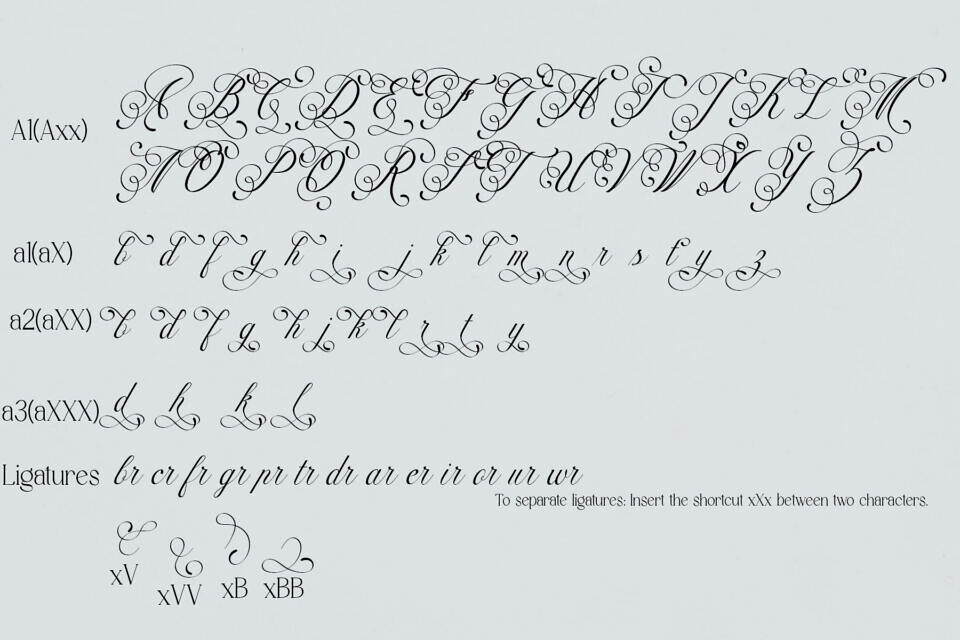 A1(Axx) A B C D E F G H I J K L M
N O P Q R S T U V W X Y Z
a1(aX) b d f g h i j k l m n r s t y z
a2(aXX) b d f g h j k l r t y
a3(aXXX) d h k l
Ligatures br cr fr gr pr tr dr ar er ir or ur wr
To separate ligatures: Insert the shortcut xXx between two characters.
xV xVV xB xBB